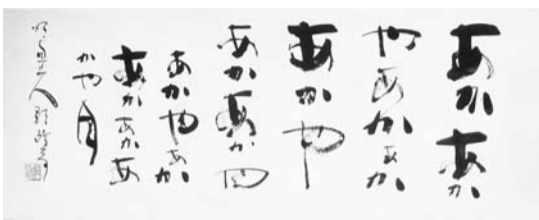 あかあか
やあかあか
あかや
あかあかや
あかやあか
あかあかあ
かや月
明恵上人歌